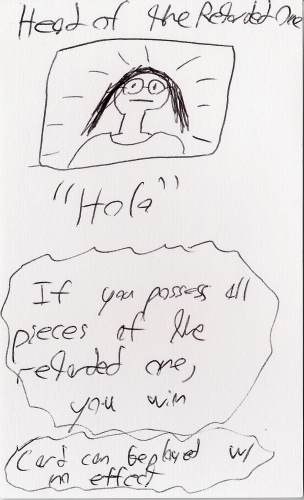 Head of the Retarded One
"Hola"
If you possess all
pieces of the
retarded one,
you win
Card can be played w/
no effect